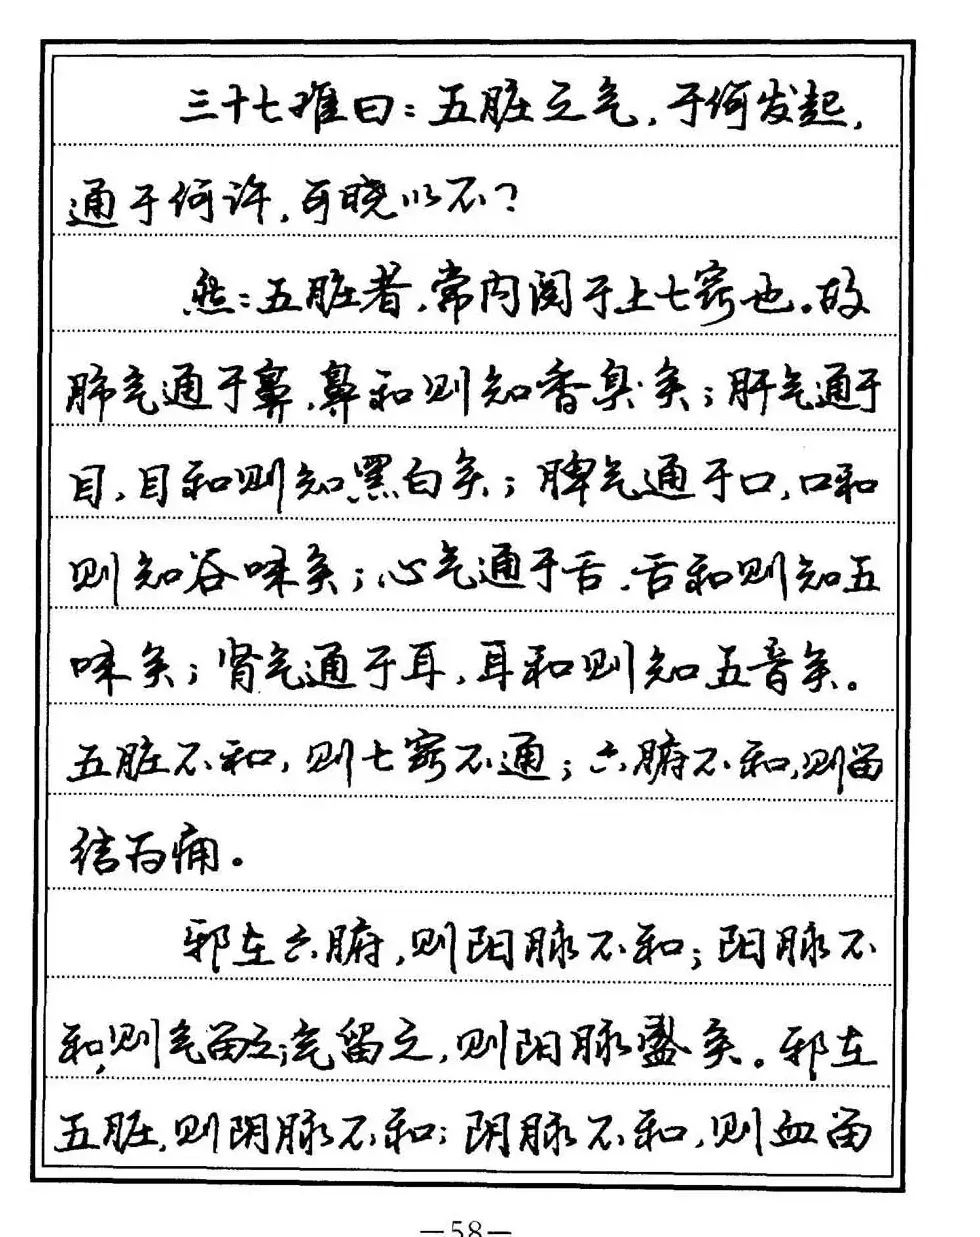 三十七难曰：五脏之气，于何发起，
通于何许，可晓以不？
然：五脏者，常内阅于上七窍也。故
肺气通于鼻，鼻和则知香臭矣；肝气通于
目，目和则知黑白矣；脾气通于口，口和
则知谷味矣；心气通于舌，舌和则知五
味矣；肾气通于耳，耳和则知五音矣。
五脏不和，则七窍不通；六腑不和，则留
结为痈。
邪在六腑，则阳脉不和；阳脉不
和，则气留之；气留之，则阳脉盛矣。邪在
五脏，则阴脉不和；阴脉不和，则血留
—58—